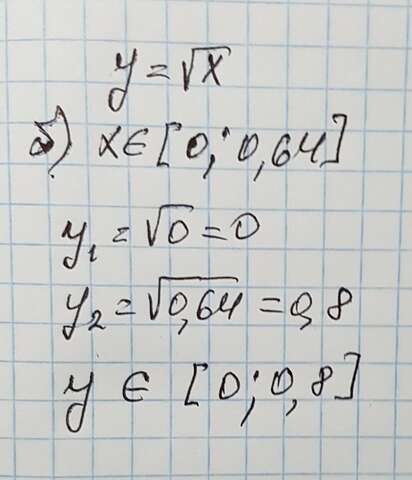 y = √x
б) x ∈ [0; 0,64]
y₁ = √0 = 0
y₂ = √0,64 = 0,8
y ∈ [0; 0,8]